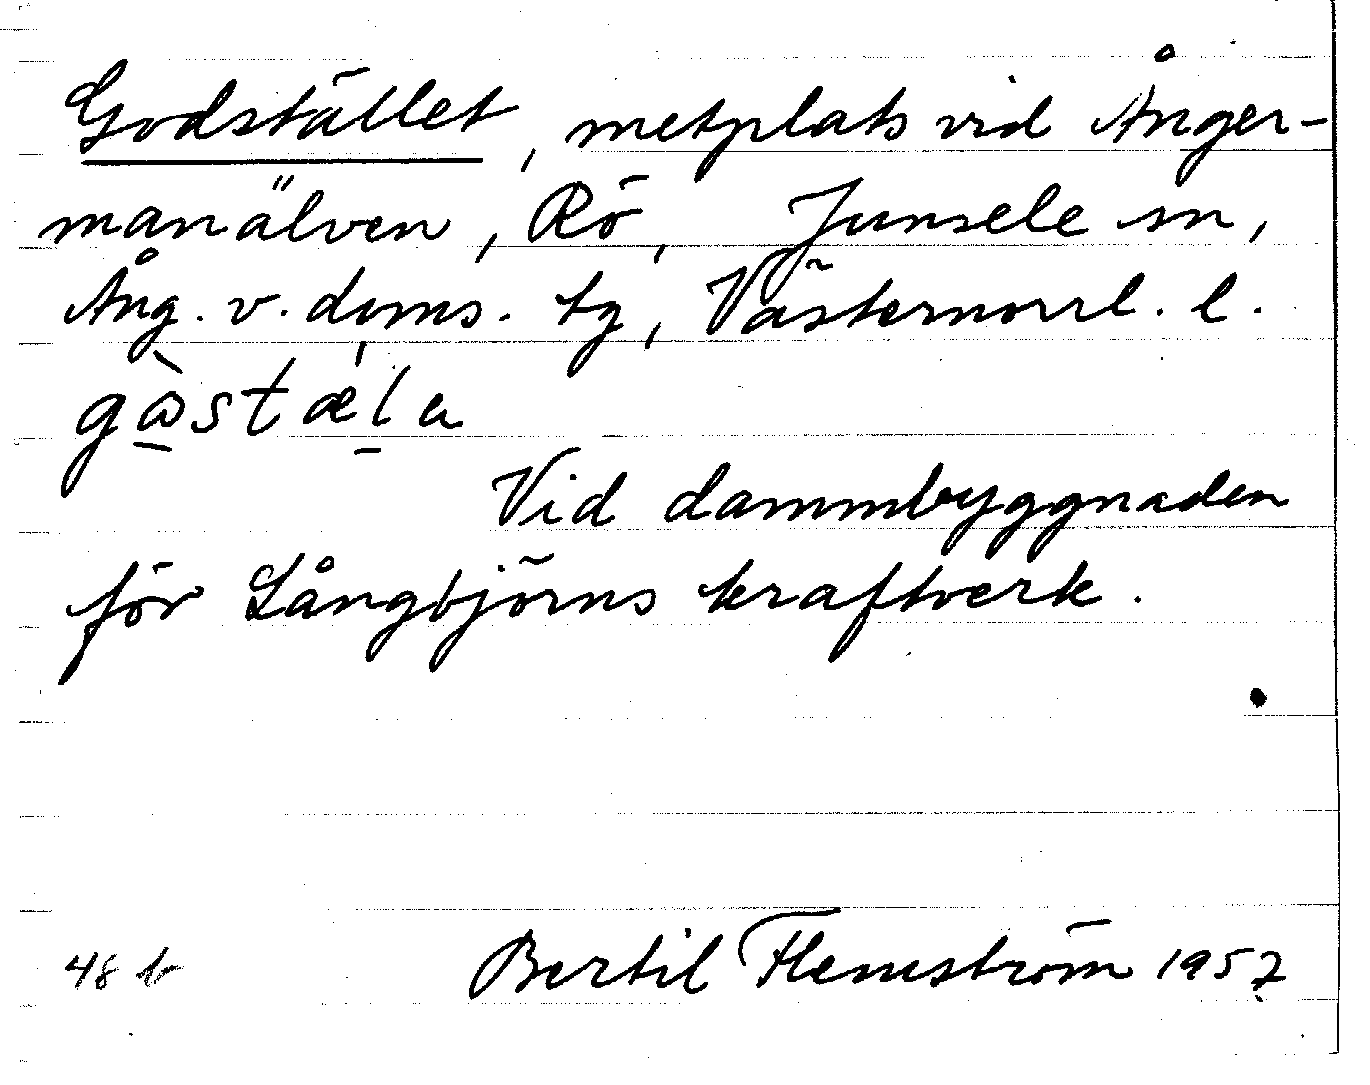 Godstället, metplats vid Ånger-
manälven, Rö, Junsele sn,
Ång. v. doms. tg, Västernorrl. l.
gòstæ̀la
Vid dammbyggnaden
för Långbjörns kraftverk.
48 b
Bertil Flemström 1957